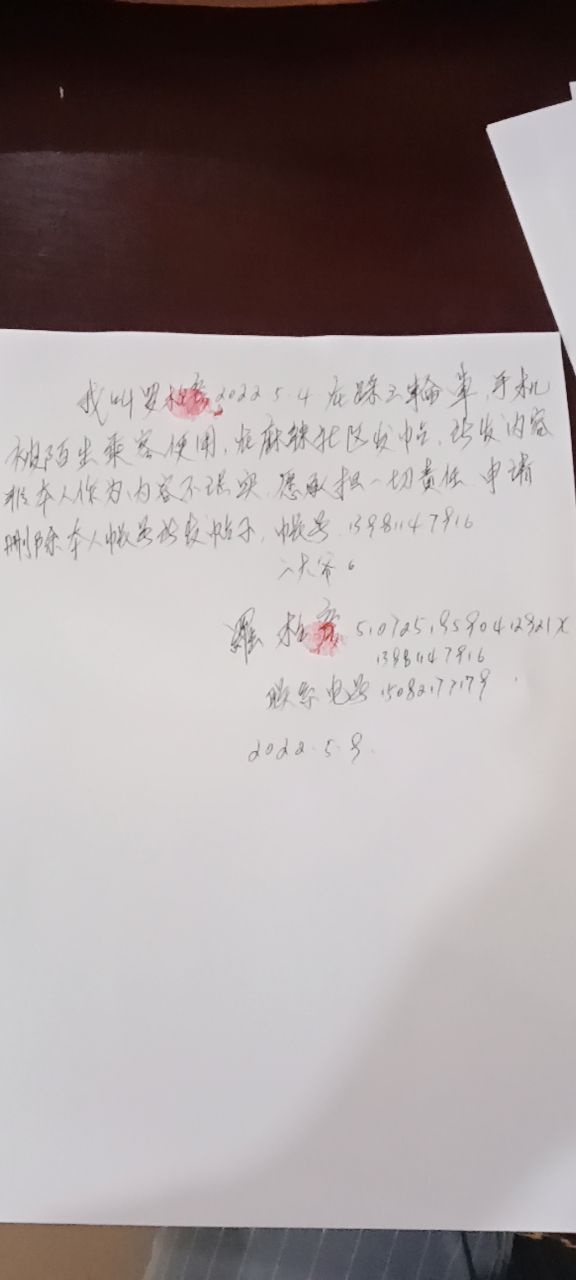 我叫罗 2022.5.4 在踩三轮车,手机
被陌生乘客使用,在麻辣社区发帖,所发内容
非本人作为,内容不現实,愿承担一切责任,申请
删除本人帐号所发帖子,帐号,13981147916
六大爷。
羅 51072519590412921X
13981147916
联系电号15082177179
2022.5.9.